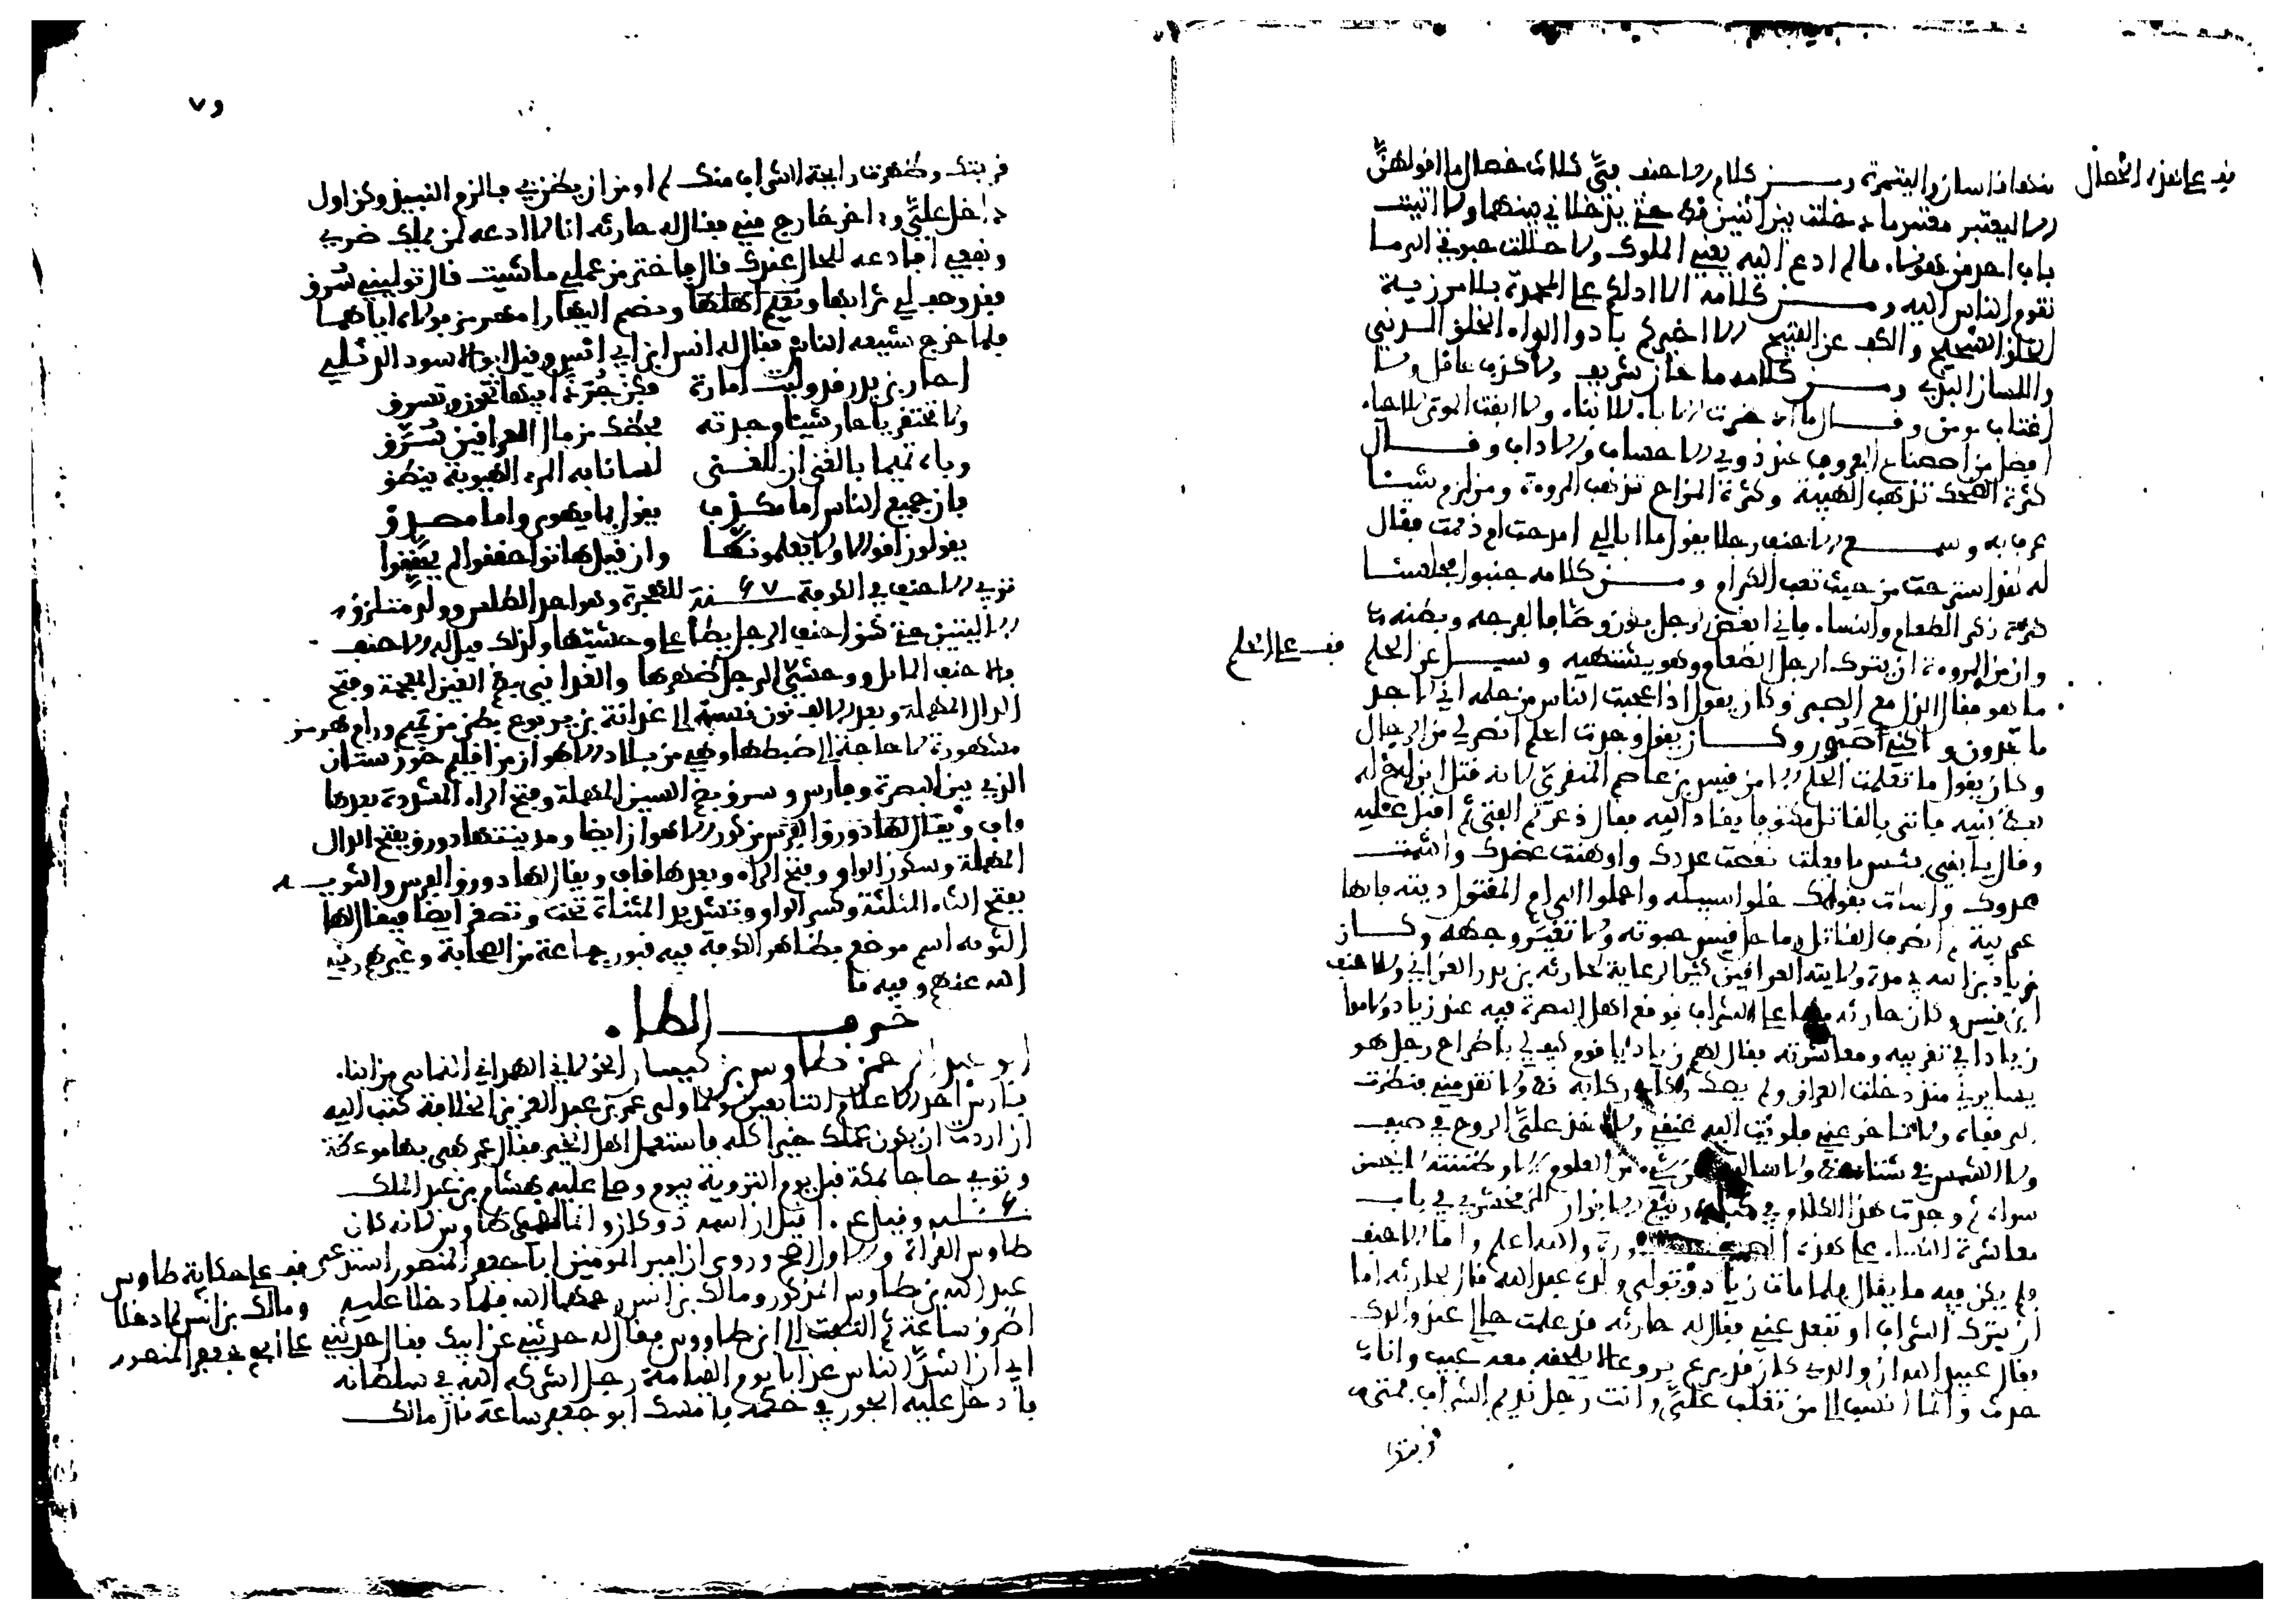 قف على هذه الخصال
منها اذا سار والبشرة ومن كلام الاحنف في ثلاث خصال ما اقولهن
الا ليعتبر معتبر ما دخلت بين اثنين قط حتى يدخلاني بينهما ولا اتيت
باب احد من هولاء ما لم ادع اليه يعني الملوك ولا حللت حبوتي الى ما
تقوم الناس اليه ومن كلامه الا ادلكم على المحمدة بلا مرزية
الخلق السجيح والكف عن القبيح الا اخبركم بادوا الداء الخلق الدني
واللسان البذي ومن كلامه ما خان شريف ولا كذب عاقل ولا
اغتاب مومن وقال ما ادخرت الاباء للابناء ولا ابقت الموتى للاحياء
افضل من اصطناع المعروف عند ذوي الاحساب والاداب وقال
كثرة الضحك تذهب الهيبة وكثرة المزاح تذهب المروة ومن لزم شيئا
عرف به وسمع الاحنف رجلا يقول ما ابالي امدحت ام ذممت فقال
له لقد استرحت من حيث تعب الكرام ومن كلامه جنبوا مجلسنا
ذكر الطعام والنساء فاني ابغض الرجل يكون وصافا لفرجه وبطنه
وان من المروءة ان يترك الرجل الطعام وهو يشتهيه وسيل عن الحلم
قف على الحلم
ما هو فقال الذل مع الصبر وكان يقول اذا عجبت الناس من حلمه اني لاجد
ما تجدون ولكني صبور وكان يقول وجدت الحلم انصر لي من الرجال
وكان يقول ما تعلمت الحلم الا من قيس بن عاصم المنقري لانه قتل ابن اخ له
بعض بنيه فاتي بالقاتل مكتوفا يقاد اليه فقال ذعرتم الفتى ثم اقبل عليه
وقال يا بني بئس ما فعلت نقصت عددك واوهنت عضدك واشمت
عدوك واسات بقومك خلوا سبيله واحملوا الى ام المقتول ديته فانها
غريبة ثم انصرف القاتل وما حل قيس حبوته ولا تغير وجهه وكان
زياد بن ابيه في مدة ولايته العراقين كثير الرعاية لحارثه بن بدر الغداني والاحنف
ابن قيس وكان حارثه على الشراب فوقع اهل البصرة فيه عند زياد ولاموا
زيادا في تقريبه ومعاشرته فقال لهم زياد يا قوم كيف لي باطراح رجل هو
يسايرني منذ دخلت العراق ولم يصك ركابه ركابي قط ولا تقدمني فنظرت
الى قفاه ولا تاخر عني فلويت اليه عنقي ولا اخذ علي الروح في صيف
ولا الشمس في شتاء قط ولا سالته عن شيء من العلوم الا وظننته لا يحسن
سواه ثم وجدت هذا الكلام في كتاب ربيع الابرار للزمخشري في باب
معاشرة النساء على هذه الصورة والله اعلم واما الاحنف
فلم يكن فيه ما يقال فلما مات زياد وتولى ولده عبيد الله قال لحارثه اما
ان تترك الشراب او تبعد عني فقال له حارثه قد علمت حالي عند والدك
فقال عبيد الله ان والدي كان قد برع بروعا لا يلحقه معه عيب وانا
حدث وانما انسب الى من تغلب علي وانت رجل تديم الشراب فمتى
قربتك
قربتك وظهرت رايحة الشراب منك لم اومن ان يظن بي فالزم النبيذ وكن اول
داخل علي واخر خارج عني فقال له حارثه انا لا ادعه لمن يملك ضري
ونفعي افادعه للحال عندك قال فاختر من عملي ما شيت قال توليني سرق
فقد وصف لي شرابها
فلما خرج شيعه الناس فقال له انس ابن ابي انس وقيل ابو الاسود الدئلي
احار بن بدر قد وليت امارة فكن جرذا فيها تخون وتسرق
ولا تحتقر يا حار شيئا وجدته فحظك من مال العراقين سرق
وباه تميما بالغنى ان للغنى لسانا به المرء الهيوبة ينطق
فان جميع الناس اما مكذب يقول بما يهوى واما مصدق
يقولون اقوالا ولا يعلمونها وان قيل هاتوا حققوا لم يحققوا
توفي الاحنف في الكوفة سنة ٦٧ للهجرة وهو احد الطلس وولد ملتزق
الاليتين حتى شق احنف الرجل يطا على وحشيتها ولذلك قيل له الاحنف
والاحنف المايل ووحشي الرجل ظهرها والغداني بضم الغين المعجمة وفتح
الدال المهملة وبعد الالف نون نسبة الى غدانة بن يربوع بطن من تميم ورام هرمز
مشهورة لا حاجة الى ضبطها وهي من بلاد الاهواز من اقليم خوزستان
الذي بين البصرة وفارس وسرق بضم السين المهملة وفتح الراء المشددة بعدها
قاف ويقال لها دورق الفرس من كور الاهواز ايضا ومدينتها دورق بفتح الدال
المهملة وسكون الواو وفتح الراء وبعدها قاف ويقال لها دورق الفرس والثوية
بفتح الثاء المثلثة وكسر الواو وتشديد المثناة تحت وتصغر ايضا فيقال لها
الثويه اسم موضع بظاهر الكوفة فيه قبور جماعة من الصحابة وغيرهم رضي
الله عنهم وفيه ما
حرف الطاء
ابو عبد الرحمن طاوس بن كيسان الخولاني الهمداني اليماني من ابناء
فارس احد الاعلام التابعين ولما ولي عمر بن عبد العزيز الخلافة كتب اليه
ان اردت ان يكون عملك خيرا كله فاستعمل اهل الخير فقال عمر كفى بها موعظة
وتوفي حاجا بمكة قبل يوم التروية بيوم وصلى عليه هشام بن عبد الملك
طاوس القراء والاول اصح وروي ان امير المومنين ابا جعفر المنصور استدعى
قف على حكاية طاوس
ومالك بن انس لما دخلا
على ابي جعفر المنصور
عبد الله بن طاوس المذكور ومالك بن انس رحمهما الله فلما دخلا عليه
اطرق ساعة ثم التفت الى ابن طاووس فقال له حدثني عن ابيك فقال حدثني
ابي ان اشد الناس عذابا يوم القيامة رجل اشركه الله في سلطانه
فادخل عليه الجور في حكمه فامسك ابو جعفر ساعة قال مالك